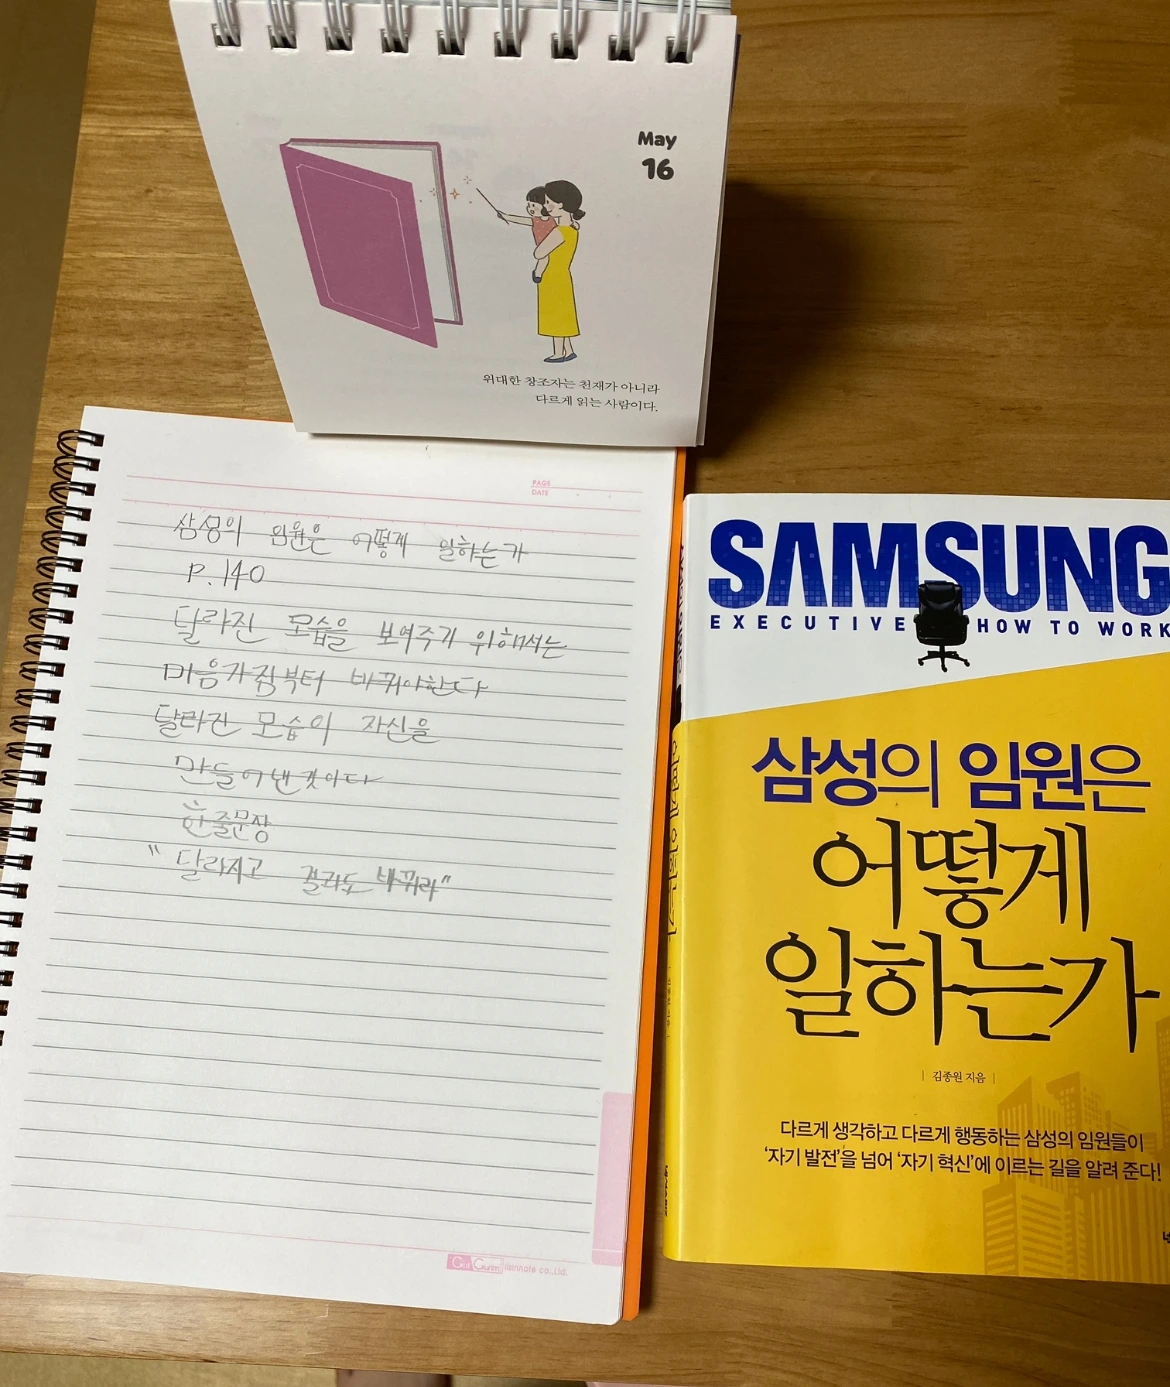 May
16
위대한 창조자는 천재가 아니라
다르게 읽는 사람이다.
PAGE
DATE
삼성의 임원은 어떻게 일하는가
P. 140
달라진 모습을 보여주기 위해서는
마음가짐부터 바꿔야한다
달라진 모습의 자신을
만들어낸것이다
한줄문장
"달라지고 결과도 바꿔라"
iisinnote co.,Ltd.
SAMSUNG
EXECUTIVE HOW TO WORK
삼성의 임원은
어떻게
일하는가
| 김종원 지음 |
다르게 생각하고 다르게 행동하는 삼성의 임원들이
'자기 발전'을 넘어 '자기 혁신'에 이르는 길을 알려 준다!